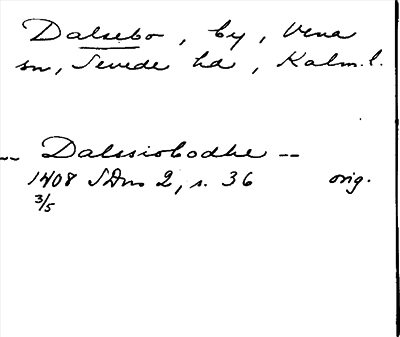 Dalsebo, by, Vena
sn, Sevede hd, Kalm. l.
-- Dalssiobodhe --
1408 SDns 2, s. 36 orig.
3/5